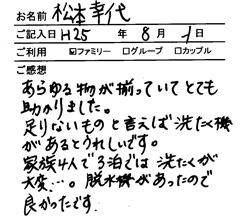 お名前 松本幸代
ご記入日 H25 年 8 月 1 日
ご利用 ☑ファミリー □グループ □カップル
ご感想
あらゆる物が揃っていてとても
助かりました。
足りないものと言えば洗たく機
があるとうれしいです。
家族4人で3泊では洗たくが
大変…。脱水機があったので
良かったです。